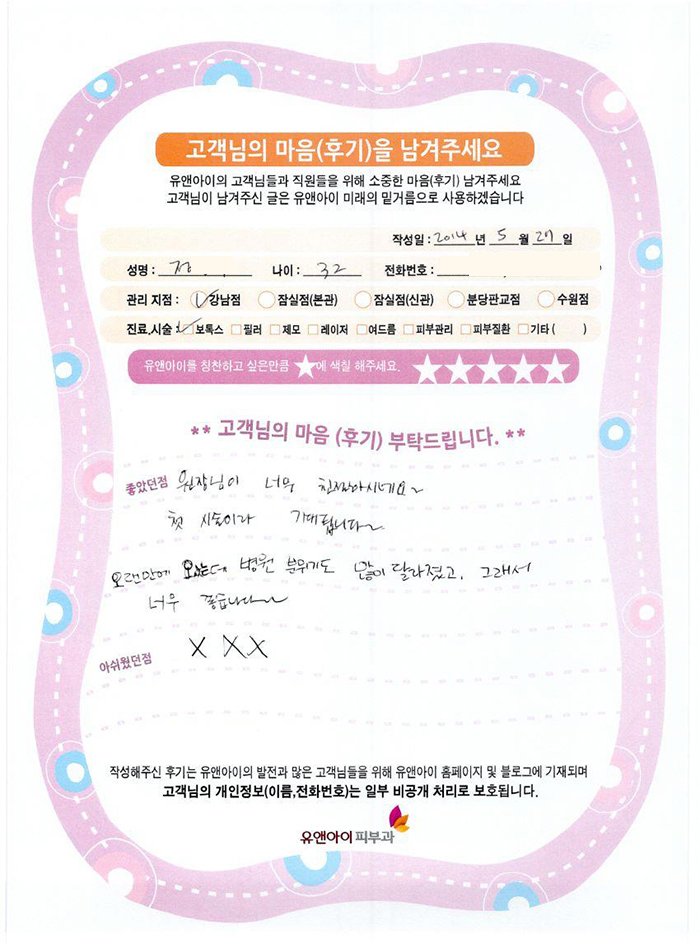 고객님의 마음(후기)을 남겨주세요
유앤아이의 고객님들과 직원들을 위해 소중한 마음(후기) 남겨주세요
고객님이 남겨주신 글은 유앤아이 미래의 밑거름으로 사용하겠습니다
작성일 : 2014 년 5 월 27 일
성명 : 정 . . 나이 : 32 전화번호 :
관리 지점 : 강남점 잠실점(본관) 잠실점(신관) 분당판교점 수원점
진료,시술 : 보톡스 필러 제모 레이저 여드름 피부관리 피부질환 기타 ( )
유앤아이를 칭찬하고 싶은만큼 ★에 색칠 해주세요. ★★★★★
** 고객님의 마음 (후기) 부탁드립니다. **
좋았던점 원장님이 너무 친절하시네요~
첫 시술이라 기대됩니다~
오랜만에 오는데 병원 분위기도 많이 달라졌고, 그래서
너무 좋습니다~
아쉬웠던점 X X X
작성해주신 후기는 유앤아이의 발전과 많은 고객님들을 위해 유앤아이 홈페이지 및 블로그에 기재되며
고객님의 개인정보(이름,전화번호)는 일부 비공개 처리로 보호됩니다.
유앤아이 피부과